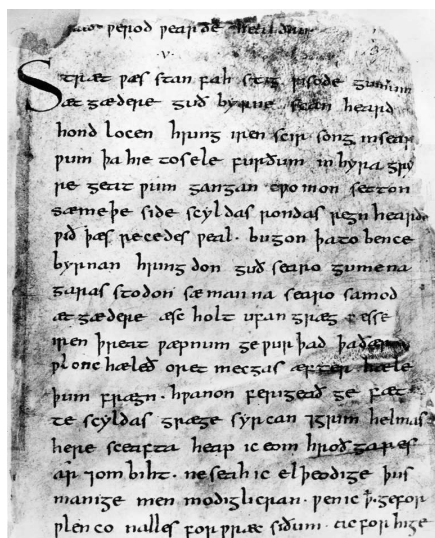 ƿerod ƿearde healdan
.v.
Stræt ƿæs stan fah stig ƿisode gumum
æt gædere guð byrne scan heard
hond locen hring iren scir song in sear
ƿum þa hie to sele furðum in hyra gry
re geat ƿum gangan cƿomon setton
sæ meþe side scyldas rondas regn hearde
ƿið þæs recedes ƿeal · bugon þa to bence
byrnan hring don guð searo gumena
garas stodon sæ man na searo samod
æt gædere æsc holt ufan græg ƿæs se
iren þreat ƿæpnum ge ƿur þad þa ðær
ƿlonc hæleð oret mecgas æfter hæle
þum frægn · hƿanon ferigeað ge fæt
te scyldas græge syrcan ⁊ grim helmas
here sceafta heap ic eom hroð gares
ar ⁊ om biht · ne seah ic el þeodige þus
manige men modiglicran · ƿen ic ꝥ · ge for
ƿlenco nalles for ƿræc siðum · ac for hige